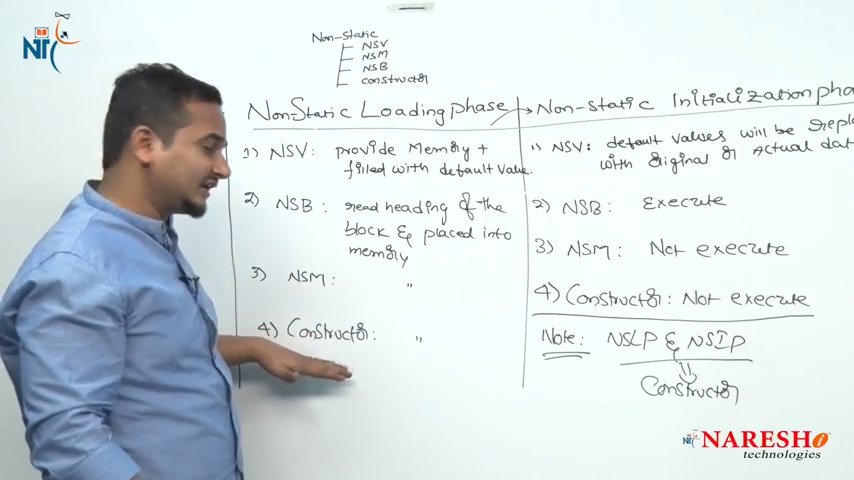 NT
Non-Static
NSV
NSM
NSB
constructor
Non-Static Loading phase
1) NSV: provide Memory +
filled with default value.
2) NSB: read heading of the
block & placed into
memory
3) NSM: "
4) Constructor: "
Non-static Initialization pha
1) NSV: default values will be repl
with original or Actual dat
2) NSB: Execute
3) NSM: Not execute
4) Constructor: Not execute
Note: NSLP & NSIP
Constructor
NARESH i
technologies